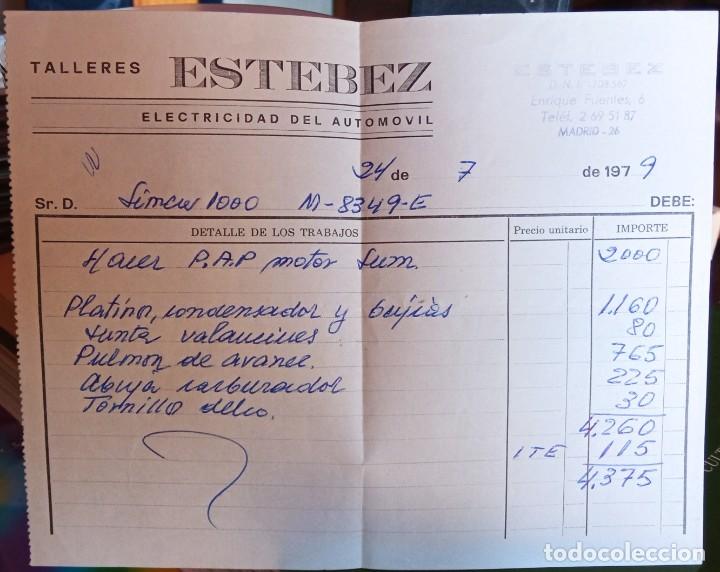 TALLERES ESTEBEZ
ELECTRICIDAD DEL AUTOMOVIL
ESTEBEZ
Enrique Fuentes, 6
Teléf. 2 69 51 87
MADRID - 26
24 de 7 de 1979
Sr. D. Simca 1000 M-8349-E DEBE:
DETALLE DE LOS TRABAJOS Precio unitario IMPORTE
Hacer P.A.P motor Sum. 2000
Platino, condensador y bujias 1.160
Junta valancines 80
Pulmon de avance. 765
Abuja carburador 225
Tornillo delco. 30
4.260
ITE 115
4.375
todocoleccion